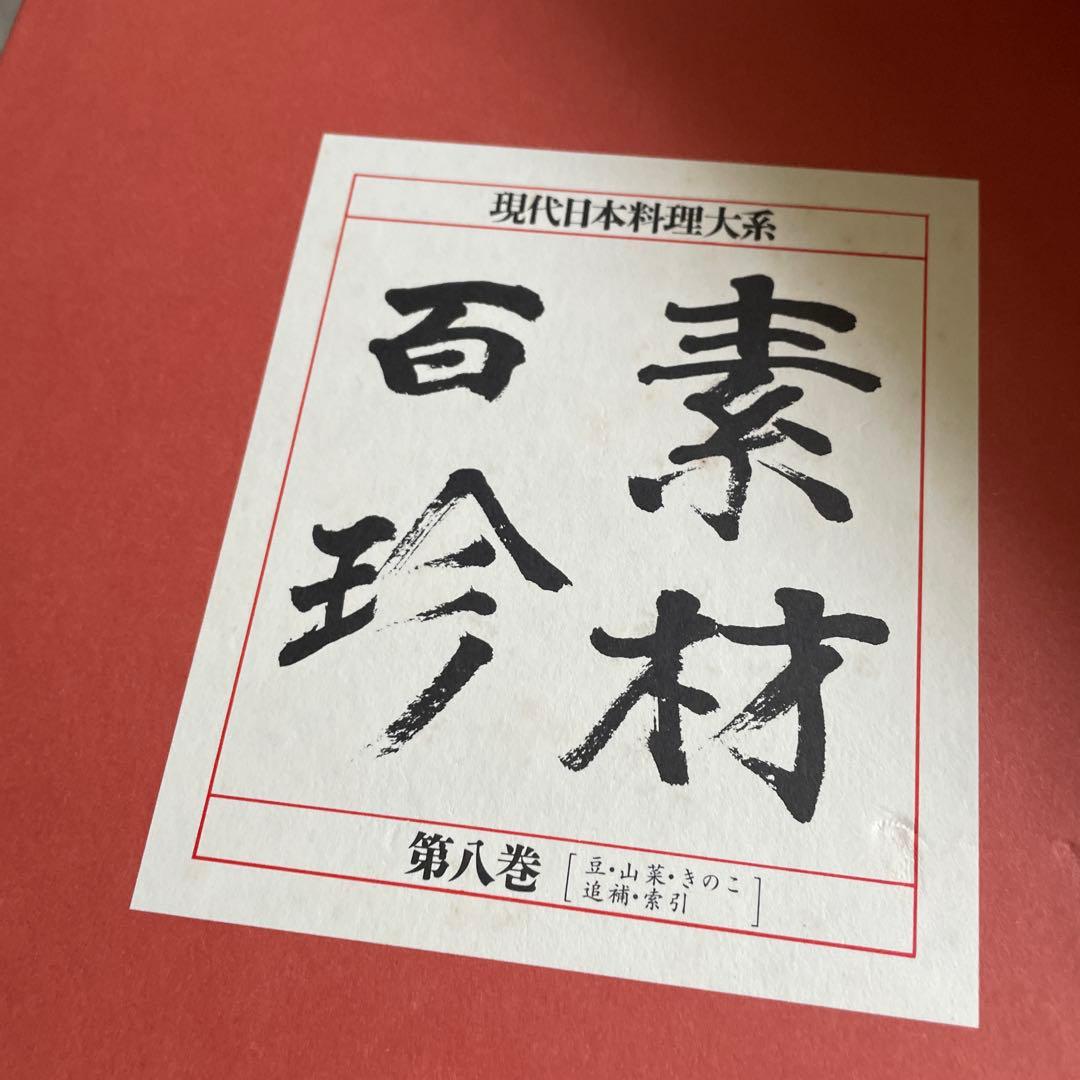 現代日本料理大系
素材
百珍
第八巻
豆・山菜・きのこ
追補・索引